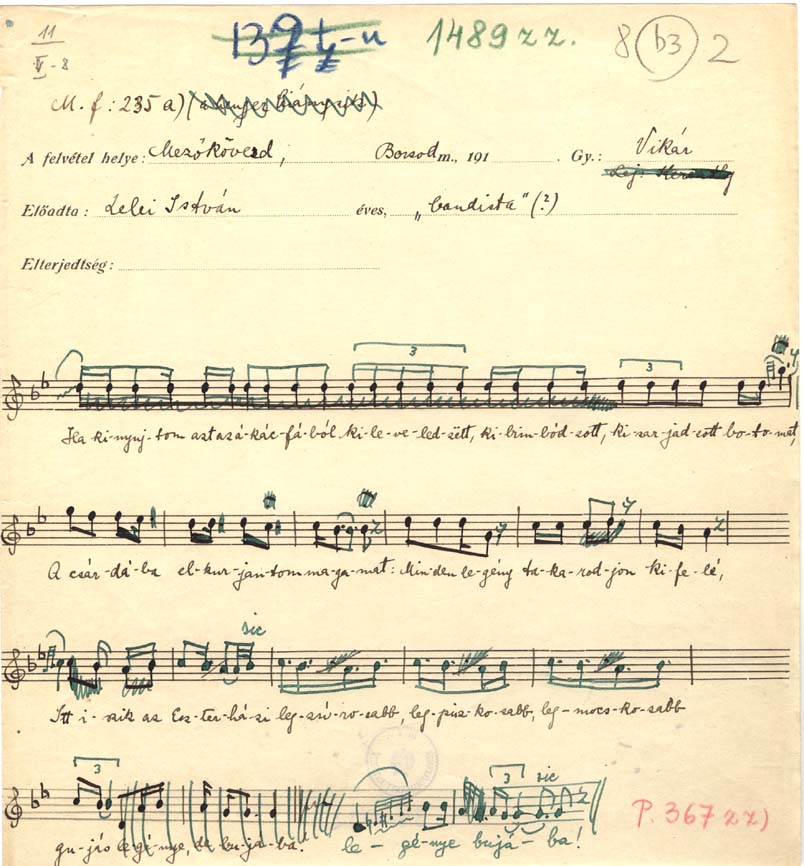 11
V-8
1489 zz. 8 b3 2
M. f: 235 a)
A felvétel helye: Mezőkövesd, Borsod m., 191 . Gy.: Vikár
Előadta: Lelei István éves, „bandista" (?)
Elterjedtség:
3 3
Ha ki-nyuj-tom aztazá-kác-fá-ból ki-le-ve-led-zëtt, ki-bim-bód-zott, ki-sar-jad-zott bo-to-mat,
A csár-dá-ba el-kur-jan-tom ma-ga-mat: Min-den le-gény ta-ka-rod-jon ki-fe-lé,
sic
Itt i-szik az Esz-ter-há-zi leg-zsí-ro-sabb, leg-pisz-ko-sabb, leg-mocs-ko-sabb
3 3 sic
gu-jás le-gé-nye, de bu-já-ba! le-gé-nye bujá-ba!
P. 367 zz)